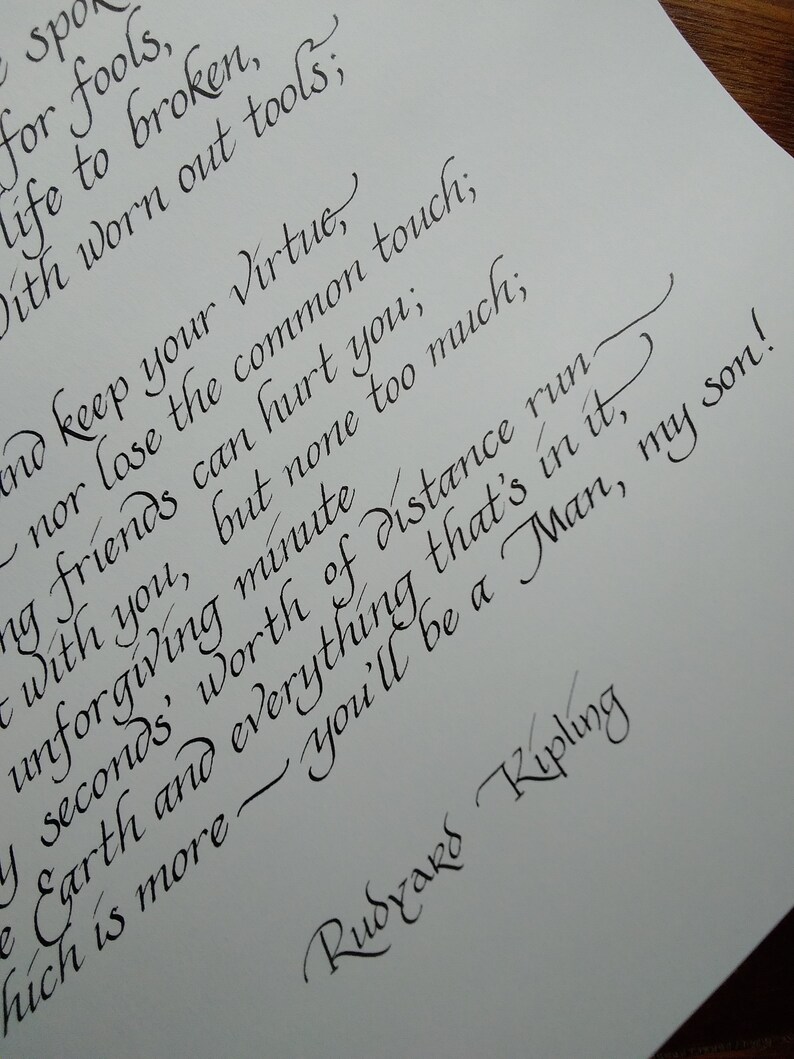 spok
for fools,
life to broken,
with worn out tools;
and keep your virtue,
nor lose the common touch;
friends can hurt you;
with you, but none too much;
unforgiving minute
seconds' worth of distance run—
Earth and everything that's in it,
is more — you'll be a Man, my son!
Rudyard Kipling